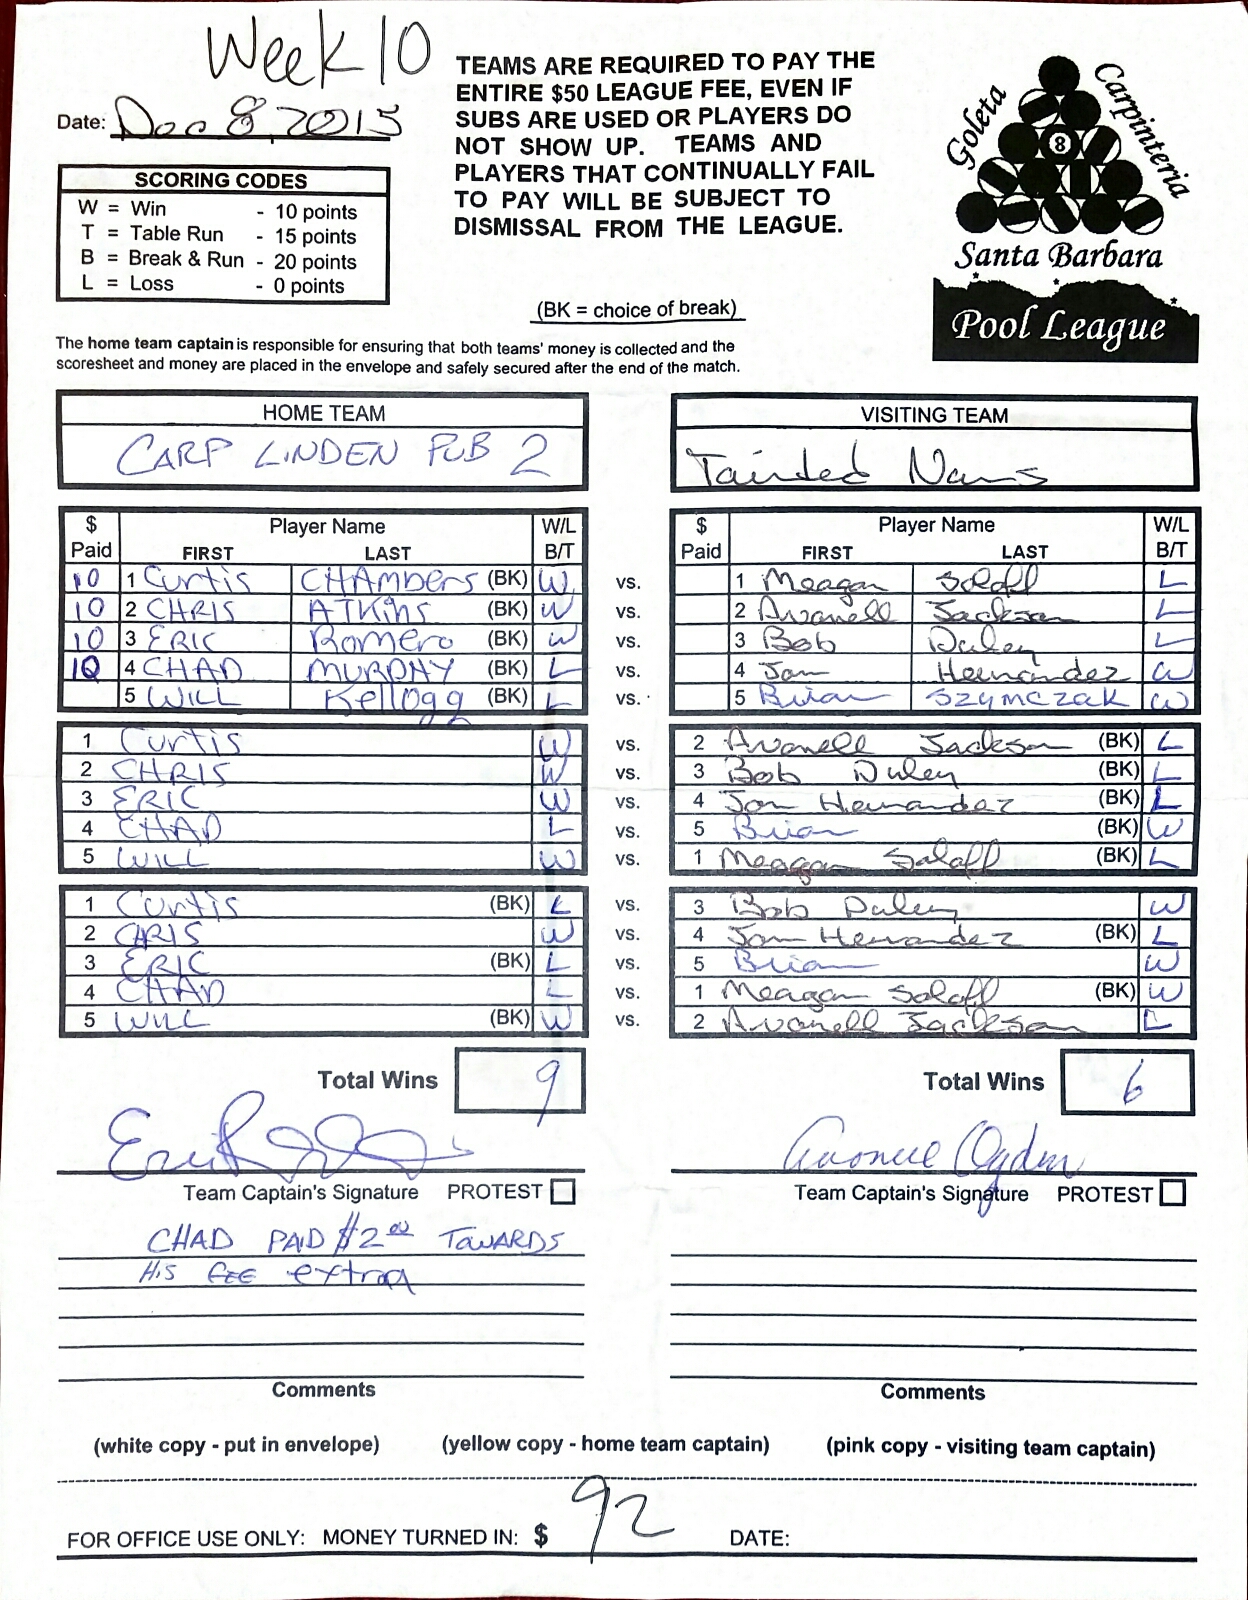 Week 10
Date: Dec 8, 2015
TEAMS ARE REQUIRED TO PAY THE
ENTIRE $50 LEAGUE FEE, EVEN IF
SUBS ARE USED OR PLAYERS DO
NOT SHOW UP. TEAMS AND
PLAYERS THAT CONTINUALLY FAIL
TO PAY WILL BE SUBJECT TO
DISMISSAL FROM THE LEAGUE.
Goleta
Carpinteria
8
Santa Barbara
Pool League
SCORING CODES
W = Win - 10 points
T = Table Run - 15 points
B = Break & Run - 20 points
L = Loss - 0 points
(BK = choice of break)
The home team captain is responsible for ensuring that both teams' money is collected and the
scoresheet and money are placed in the envelope and safely secured after the end of the match.
HOME TEAM VISITING TEAM
CARP LINDEN PUB 2 Tainted Nams
$ Paid Player Name FIRST LAST W/L B/T $ Paid Player Name FIRST LAST W/L B/T
10 1 Curtis CHAmbers (BK) W vs. 1 Meagan Soloff L
10 2 CHRIS ATKins (BK) W vs. 2 Avonell Jackson L
10 3 ERIC Romero (BK) W vs. 3 Bob Duley L
10 4 CHAD MURPHY (BK) L vs. 4 Jon Hernandez W
5 WILL Kellogg (BK) L vs. 5 Brian SZYMCZAK W
1 Curtis W vs. 2 Avonell Jackson (BK) L
2 CHRIS W vs. 3 Bob Duley (BK) L
3 ERIC W vs. 4 Jon Hernandez (BK) L
4 CHAD L vs. 5 Brian (BK) W
5 WILL W vs. 1 Meagan Soloff (BK) L
1 Curtis (BK) L vs. 3 Bob Duley W
2 CHRIS W vs. 4 Jon Hernandez (BK) L
3 ERIC (BK) L vs. 5 Brian W
4 CHAD L vs. 1 Meagan Soloff (BK) W
5 WILL (BK) W vs. 2 Avonell Jackson L
Total Wins 9 Total Wins 6
Avonell Ogden
Team Captain's Signature PROTEST Team Captain's Signature PROTEST
CHAD PAID $2.00 TOWARDS
His FEE extra
Comments Comments
(white copy - put in envelope) (yellow copy - home team captain) (pink copy - visiting team captain)
FOR OFFICE USE ONLY: MONEY TURNED IN: $ 92 DATE: